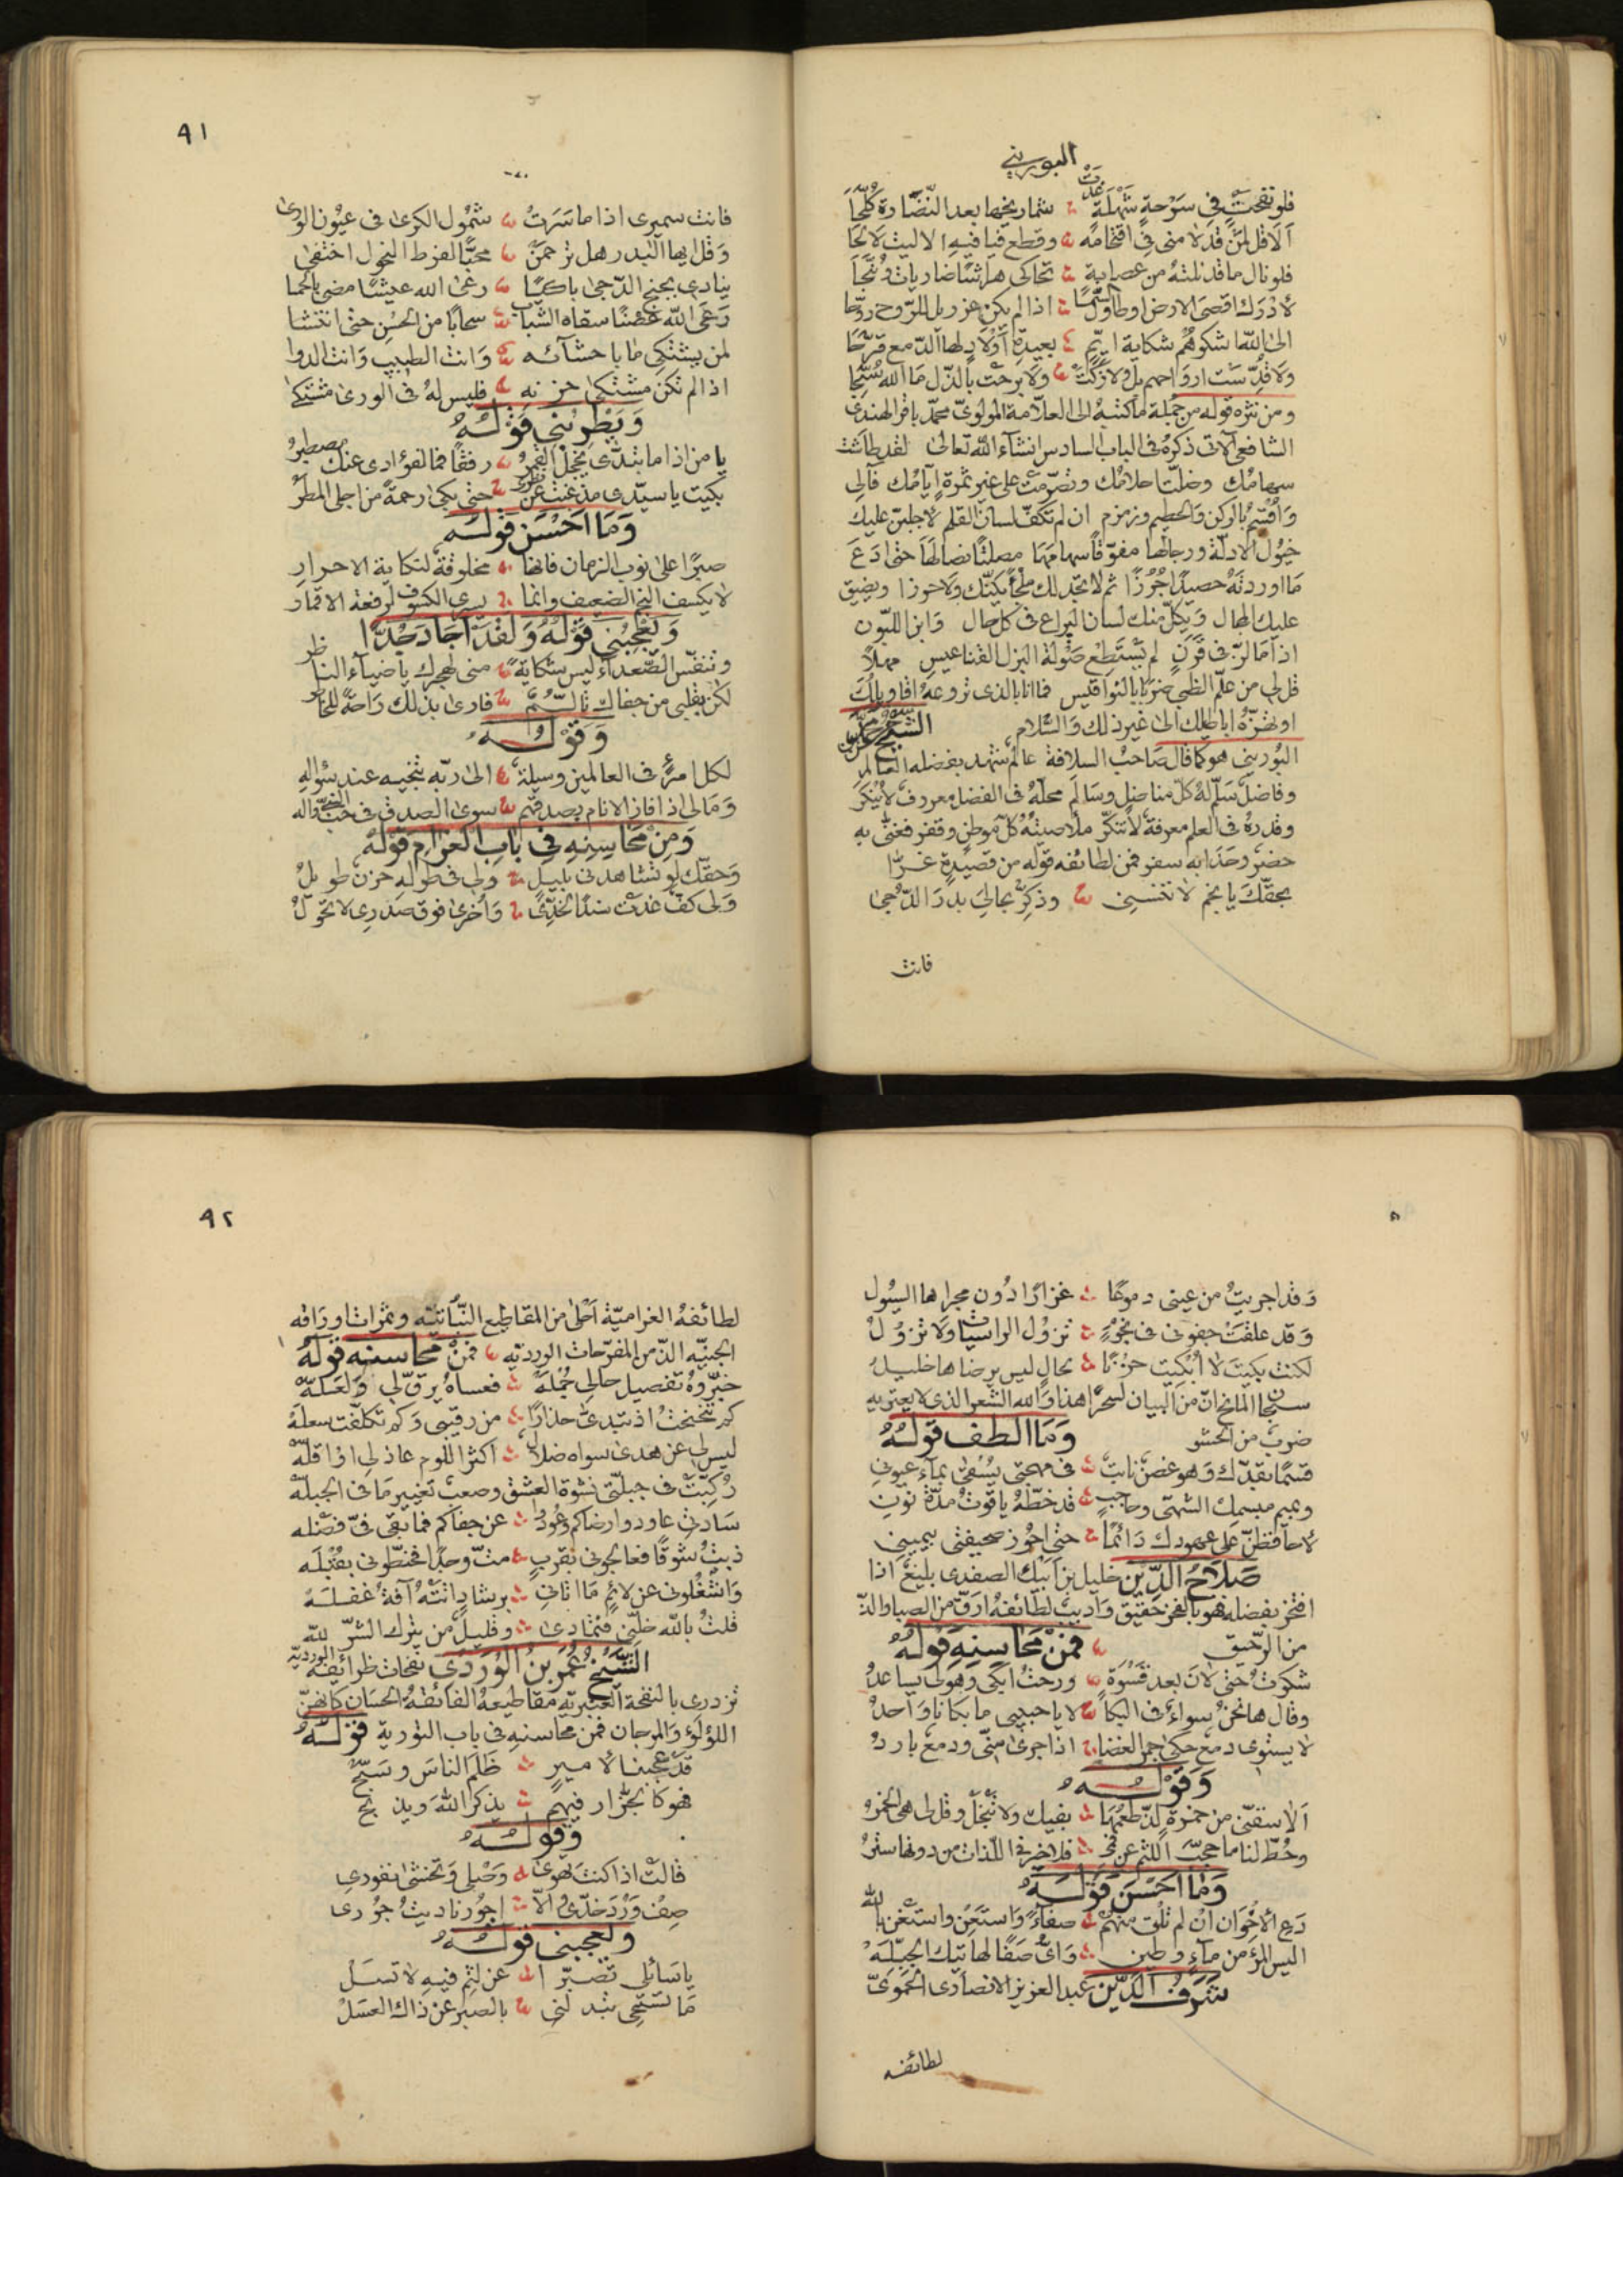 البوريني
فلو نفحت في سرحة شهلة غدت شماريخها بعد النضارة كلحا
الا قل لمن قد لامني في اقتحامه وقطع فيا فيه الا ليت لا لحا
فلو نال ما قد نلته من عصابة تحاكى هراشا ضاريات ونبحا
لادرك اقصى الارض او طاول السما اذا لم يكن عزريل للروح روحا
الى الله اشكوهم شكاية ايم بعيدة اولاد لها الدمع قرحا
ولا قدست ارواحهم بل ولا زكت ولا برحت بالذل ما الله سبحا
ومن نثره قوله من جملة ما كتبه الى العلامة المولوى محمد باقر الهندى
الشافعى الاتى ذكره فى الباب السادس انشاء الله تعالى لقد طاشت
سهامك وضلت احلامك وتصرمت على غير ثمرة ايامك فآلى
واقسم بالركن والحطيم وزمزم ان لم تكف لسان القلم لاجلبن عليك
خيول الادلة ورجالها مفوقا سهامها مصلتا نصالها حتى ادع
ما اوردته حصيدا جرزا ثم لا تجد لك ملجأ يكنك ولا حوزا ويضيق
عليك المجال ويكل منك لسان اليراع فى كل حال وابن اللبون
اذا ما لز فى قرن لم يستطع صولة البزل القناعيس مهلا
قل لى من علم الظبى ضربا بالنواقيس فما انا بالذى تروعه اقاويلك
او تهزه اباطيلك الى غير ذلك والسلام الشيخ حسن
البوريني هو كما قال صاحب السلافة عالم شهد بفضله العالم
وفاضل سلم له كل مناضل وسالم محله فى الفضل معروف لا ينكر
وقدره فى العلم معرفة لا تنكر ملأ صيته كل موطن وقفر فغنى به
حضر وحدا به سفر فمن لطائفه قوله من قصيدة غرا
بحقك يا نجم لا تنسنى وذكر بحالي بدر الدجى
فانت
٩١
فانت سميرى اذا ما سرت شمول الكرى فى عيون الورى
وقل ايها البدر هل ترحمن محبا لفرط النحول اختفى
ينادى بجنح الدجى باكيا رعى الله عيشا مضى بالحما
رعى الله غصنا سقاه الشباب سحابا من الحسن حتى انتشا
لمن يشتكى ما باحشآئه وانت الطبيب وانت الدوا
اذا لم تكن مشتكى حزنه فليس له فى الورى مشتكى
ويطربني قوله
يا من اذا ما تبدى يخجل القمر رفقا فما لفؤادى عنك مصطبر
بكيت يا سيدى مذ غبت عن نظرى حتى بكى رحمة من اجلى المطر
وما احسن قوله
صبرا على نوب الزمان فانها مخلوقة لنكاية الاحرار
لا يكسف النجم الضعيف وانما يسرى الكسوف لرفعة الاقمار
ويعجبني قوله ولقد اجاد جدا
وتنفس الصعداء ليس شكاية منى لهجرك يا ضياء الناظر
لكن بقلبى من جفاك تألم فارى بذلك راحة للخاطر
وقوله
لكل امرئ فى العالمين وسيلة الى ربه تنجيه عند سؤاله
ومالى اذا فاز الانام بصدقهم سوى الصدق فى حب النبى وآله
ومن محاسنه في باب الغرام قوله
وحقك لو تشاهدنى بليل ولى فى طوله حزن طويل
ولى كف غدت سندا لخدى واخرى فوق صدرى لا تحول
وقد اجريت من عينى دموعا غزارا دون مجراها السيول
وقد علقت جفونى فى نجوم تزول الراسيات ولا تزول
لكنت بكيت لا ابكيت حزنا بحال ليس يرضاها خليل
سبحان المانح ان من البيان لسحرا هذا والله الشعر الذى لا يعتريه
ضرب من الحشو وما الطف قوله
قسما بقدك وهو غصن نابت فى مهجتى يسقى بماء عيونى
وبميم مبسمك الشهى وحاجب قد خطه ياقوت مدة نون
لاحافظن على عهودك دائما حتى اجوز صحيفتى بيمينى
صلاح الدين خليل بن ايبك الصفدى بليغ اذا
افتخر بفضله فهو بالفخر حقيق واديب لطائفه ارق من الصبا والذ
من الرحيق فمن محاسنه قوله
شكوت حتى لان بعد قسوة ورحت ابكى وهو لى يساعد
وقال ها نحن سواء فى البكا لا يا حبيبى ما بكانا واحد
لا يستوى دمع حكى جمر الغضا اذا جرى منى ودمع بارد
وقوله
الا سقنى من خمرة لذ طعمها بفيك ولا تبخل وقل لى هى الخمر
وحط لنا ما حجب اللثم عن فمى فلا خير فى اللذات من دونها ستر
وما احسن قوله
دع الاخوان ان لم تلق منهم صفاء واستعن واستغن بالله
اليس المرء من ماء وطين واى صفا لهاتيك الجبله
شرف الدين عبد العزيز الانصارى الحموى
لطائفه
٩٢
لطائفه الغرامية احلى من المقاطيع النباتية وثمرات اوراقه
الجنيه الذ من المفرحات الورديه فمن محاسنه قوله
خبروه تفصيل حالى جمله فعساه يرق لى ولعله
كم تنحنحت اذ تبدى حذارا من رقيبى وكم تكلفت سعله
ليس لى عن هدى سواه ضلال اكثر اللوم عاذلى او اقله
ركبت فى جبلتى نشوة العشق وصعب تغيير ما فى الجبله
سادتى عاودوا رضاكم وعودوا عن جفاكم فما بقى فى فضله
ذبت شوقا فعالجونى بقرب مت وجدا فحنطونى بقبله
واشغلونى عن لائم ما اتانى برشاد انته آفة غفله
قلت بالله خلنى فتمادى وقليل من يترك الشر لله
الشيخ عمر بن الوردى نفحات ظرائفه الورديه
تزدرى بالنفحة العنبريه مقاطيعه الفائقه الحسان كانهن
اللؤلؤ والمرجان فمن محاسنه فى باب التورية قوله
قد عجبنا لامير ظلم الناس وسبح
فهو كالجزار فيهم يذكر الله ويذبح
وقوله
قالت اذا كنت تهوى وصلى وتخشى نفورى
صف ورد خدى والا اجور ناديت جورى
ويعجبنى قوله
يا سائلى تصبرا عن لثم فيه لا تسل
ما تستحى تبدلنى بالصبر عن ذاك العسل